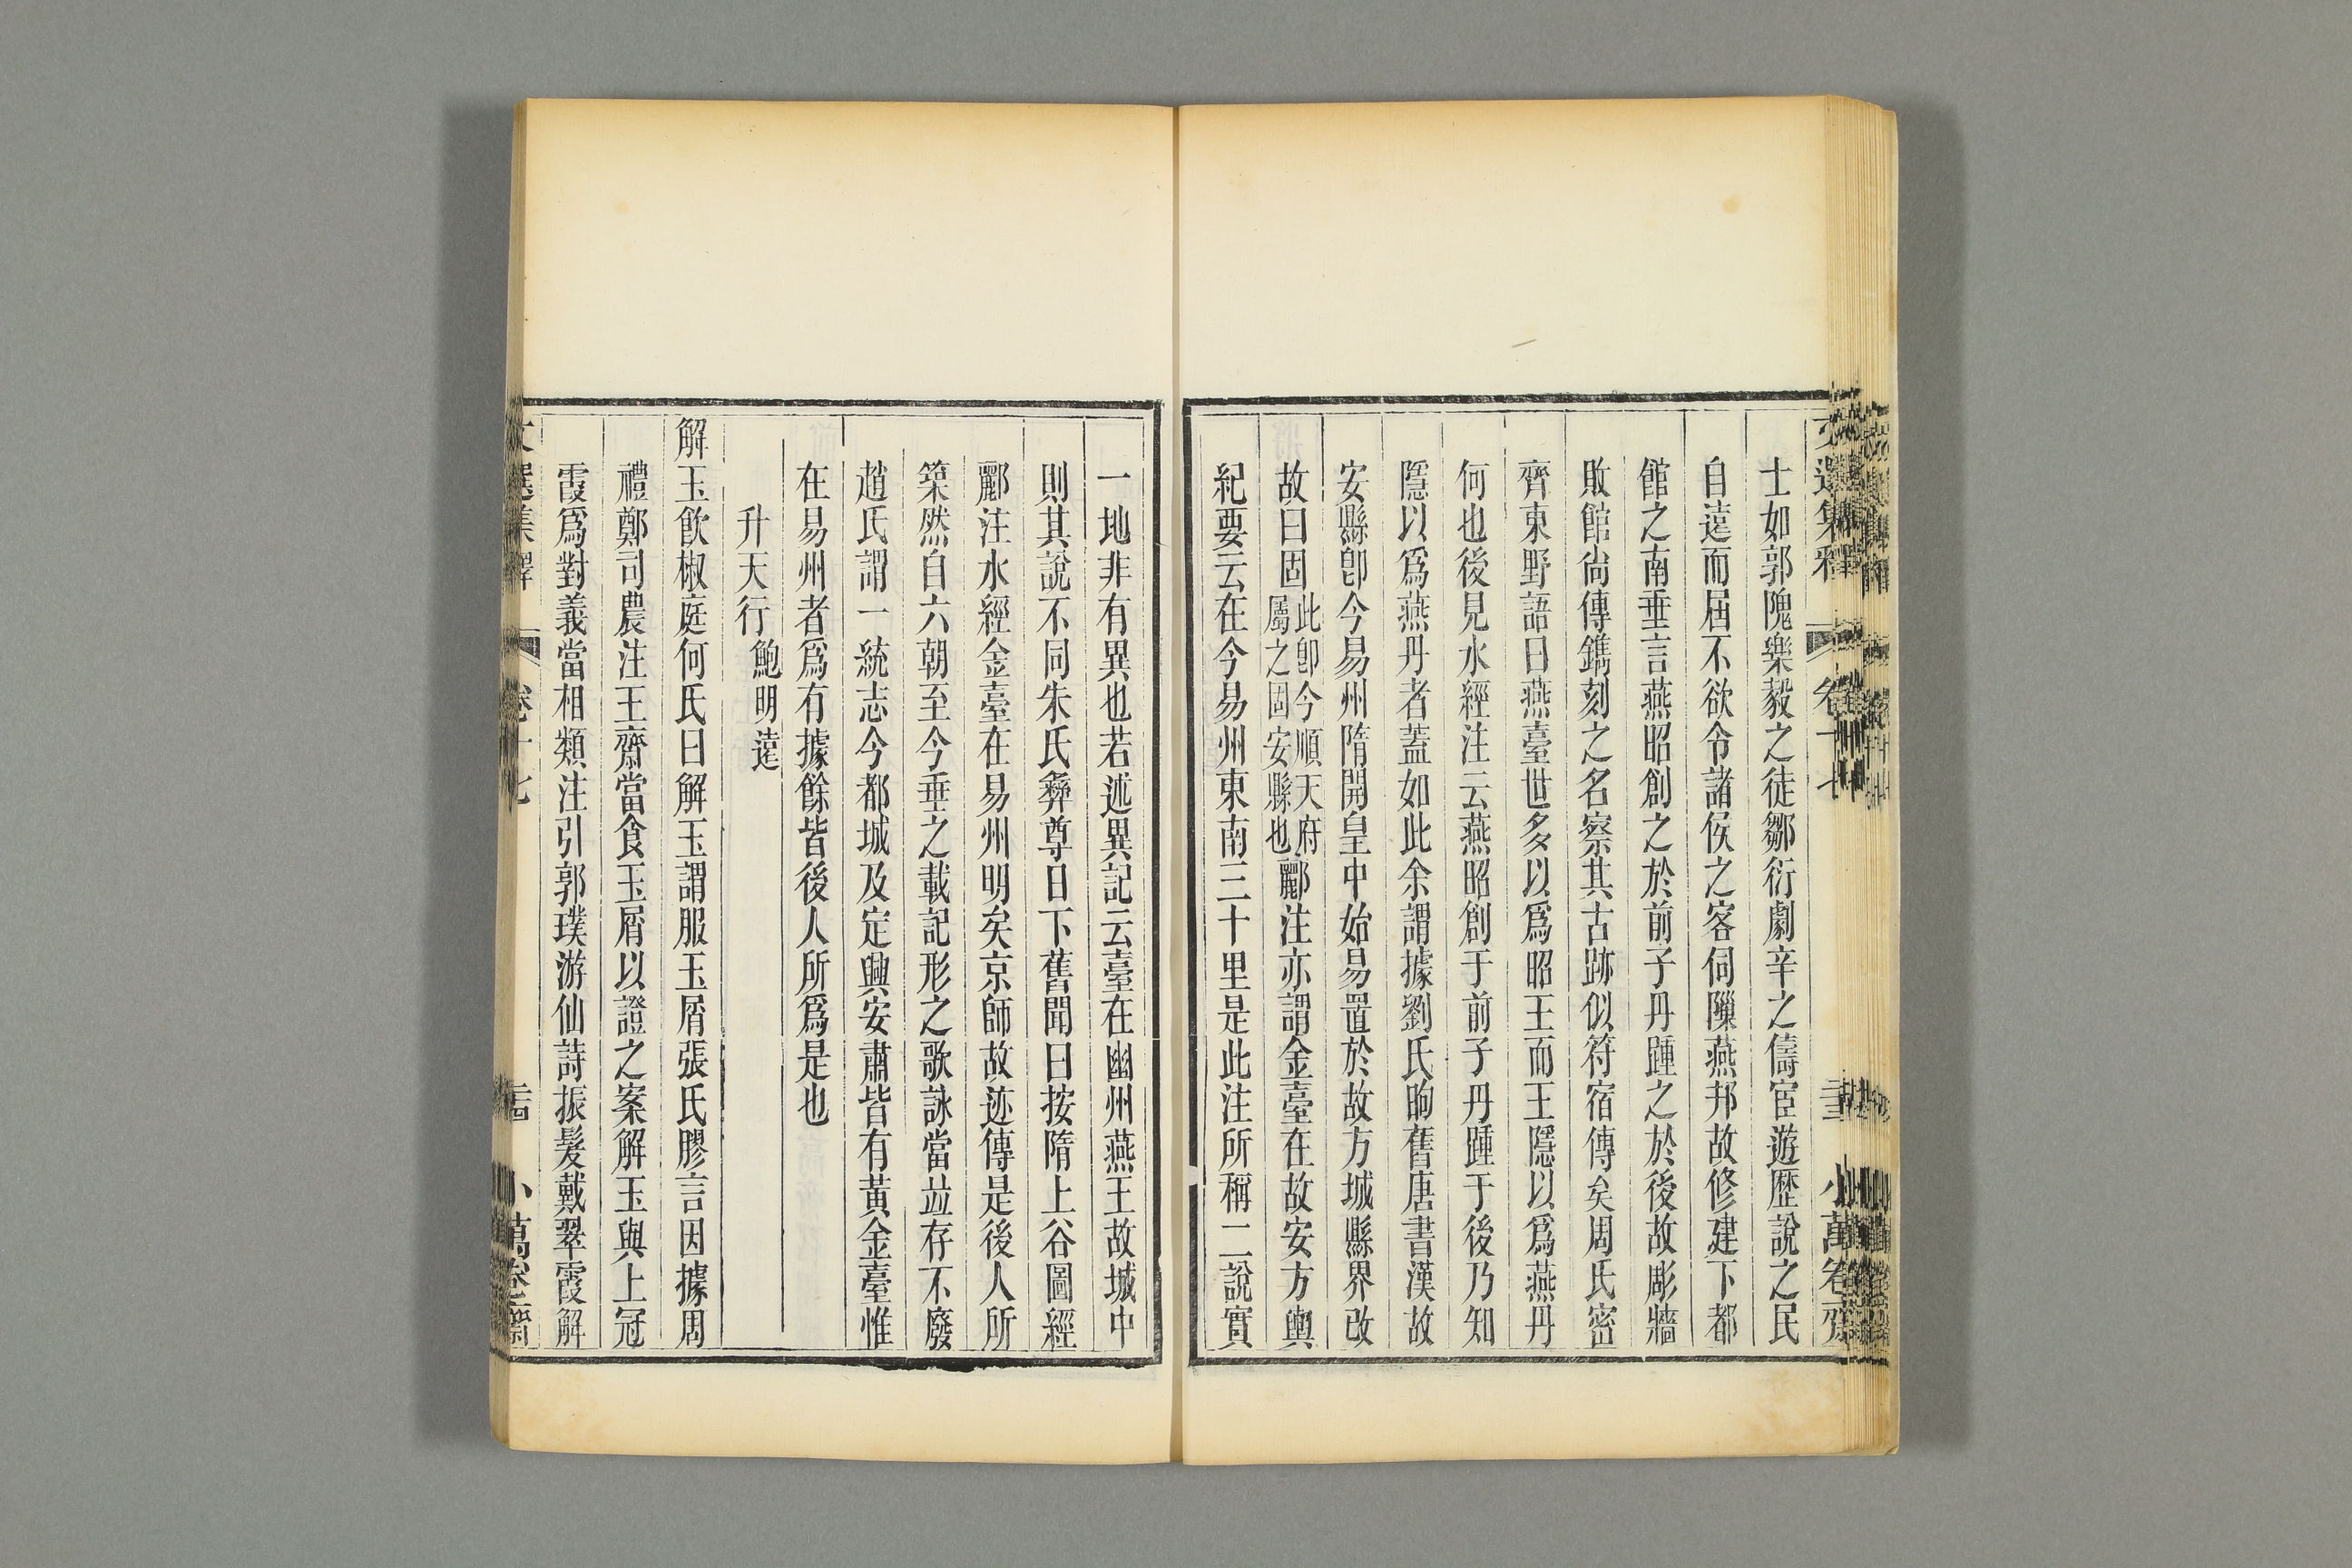 士如郭隗樂毅之徒鄒衍劇辛之儔宦遊歷說之民
自遠而屆不欲令諸侯之客伺隟燕邦故修建下都
館之南垂言燕昭創之於前子丹踵之於後故彫牆
敗館尙傳鐫刻之名察其古跡似符宿傳矣周氏密
齊東野語曰燕臺世多以爲昭王而王隱以爲燕丹
何也後見水經注云燕昭創于前子丹踵于後乃知
隱以爲燕丹者蓋如此余謂據劉氏昫舊唐書漢故
安縣卽今易州隋開皇中始易置於故方城縣界改
故曰固此卽今順天府屬之固安縣也酈注亦謂金臺在故安方輿
紀要云在今易州東南三十里是此注所稱二說實
一地非有異也若述異記云臺在幽州燕王故城中
則其說不同朱氏彝尊日下舊聞曰按隋上谷圖經
酈注水經金臺在易州明矣京師故迹傳是後人所
築然自六朝至今垂之載記形之歌詠當竝存不廢
趙氏謂一統志今都城及定興安肅皆有黃金臺惟
在易州者爲有據餘皆後人所爲是也
升天行 鮑明遠
解玉飮椒庭何氏曰解玉謂服玉屑張氏膠言因據周
禮鄭司農注王齋當食玉屑以證之案解玉與上冠
霞爲對義當相類注引郭璞游仙詩振髮戴翠霞解
文選集釋 卷十七 二古 小萬卷齋